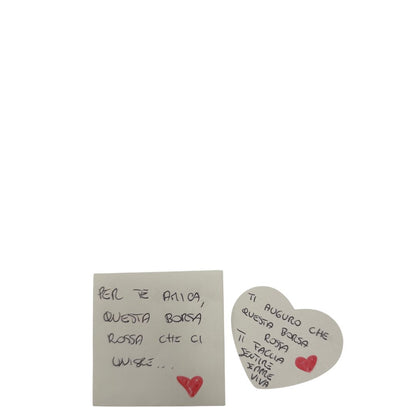 PER TE AMICA,
QUESTA BORSA
ROSSA CHE CI
UNISCE...
TI AUGURO CHE
QUESTA BORSA
ROSSA
TI FACCIA
SENTIRE
SEMPRE
VIVA